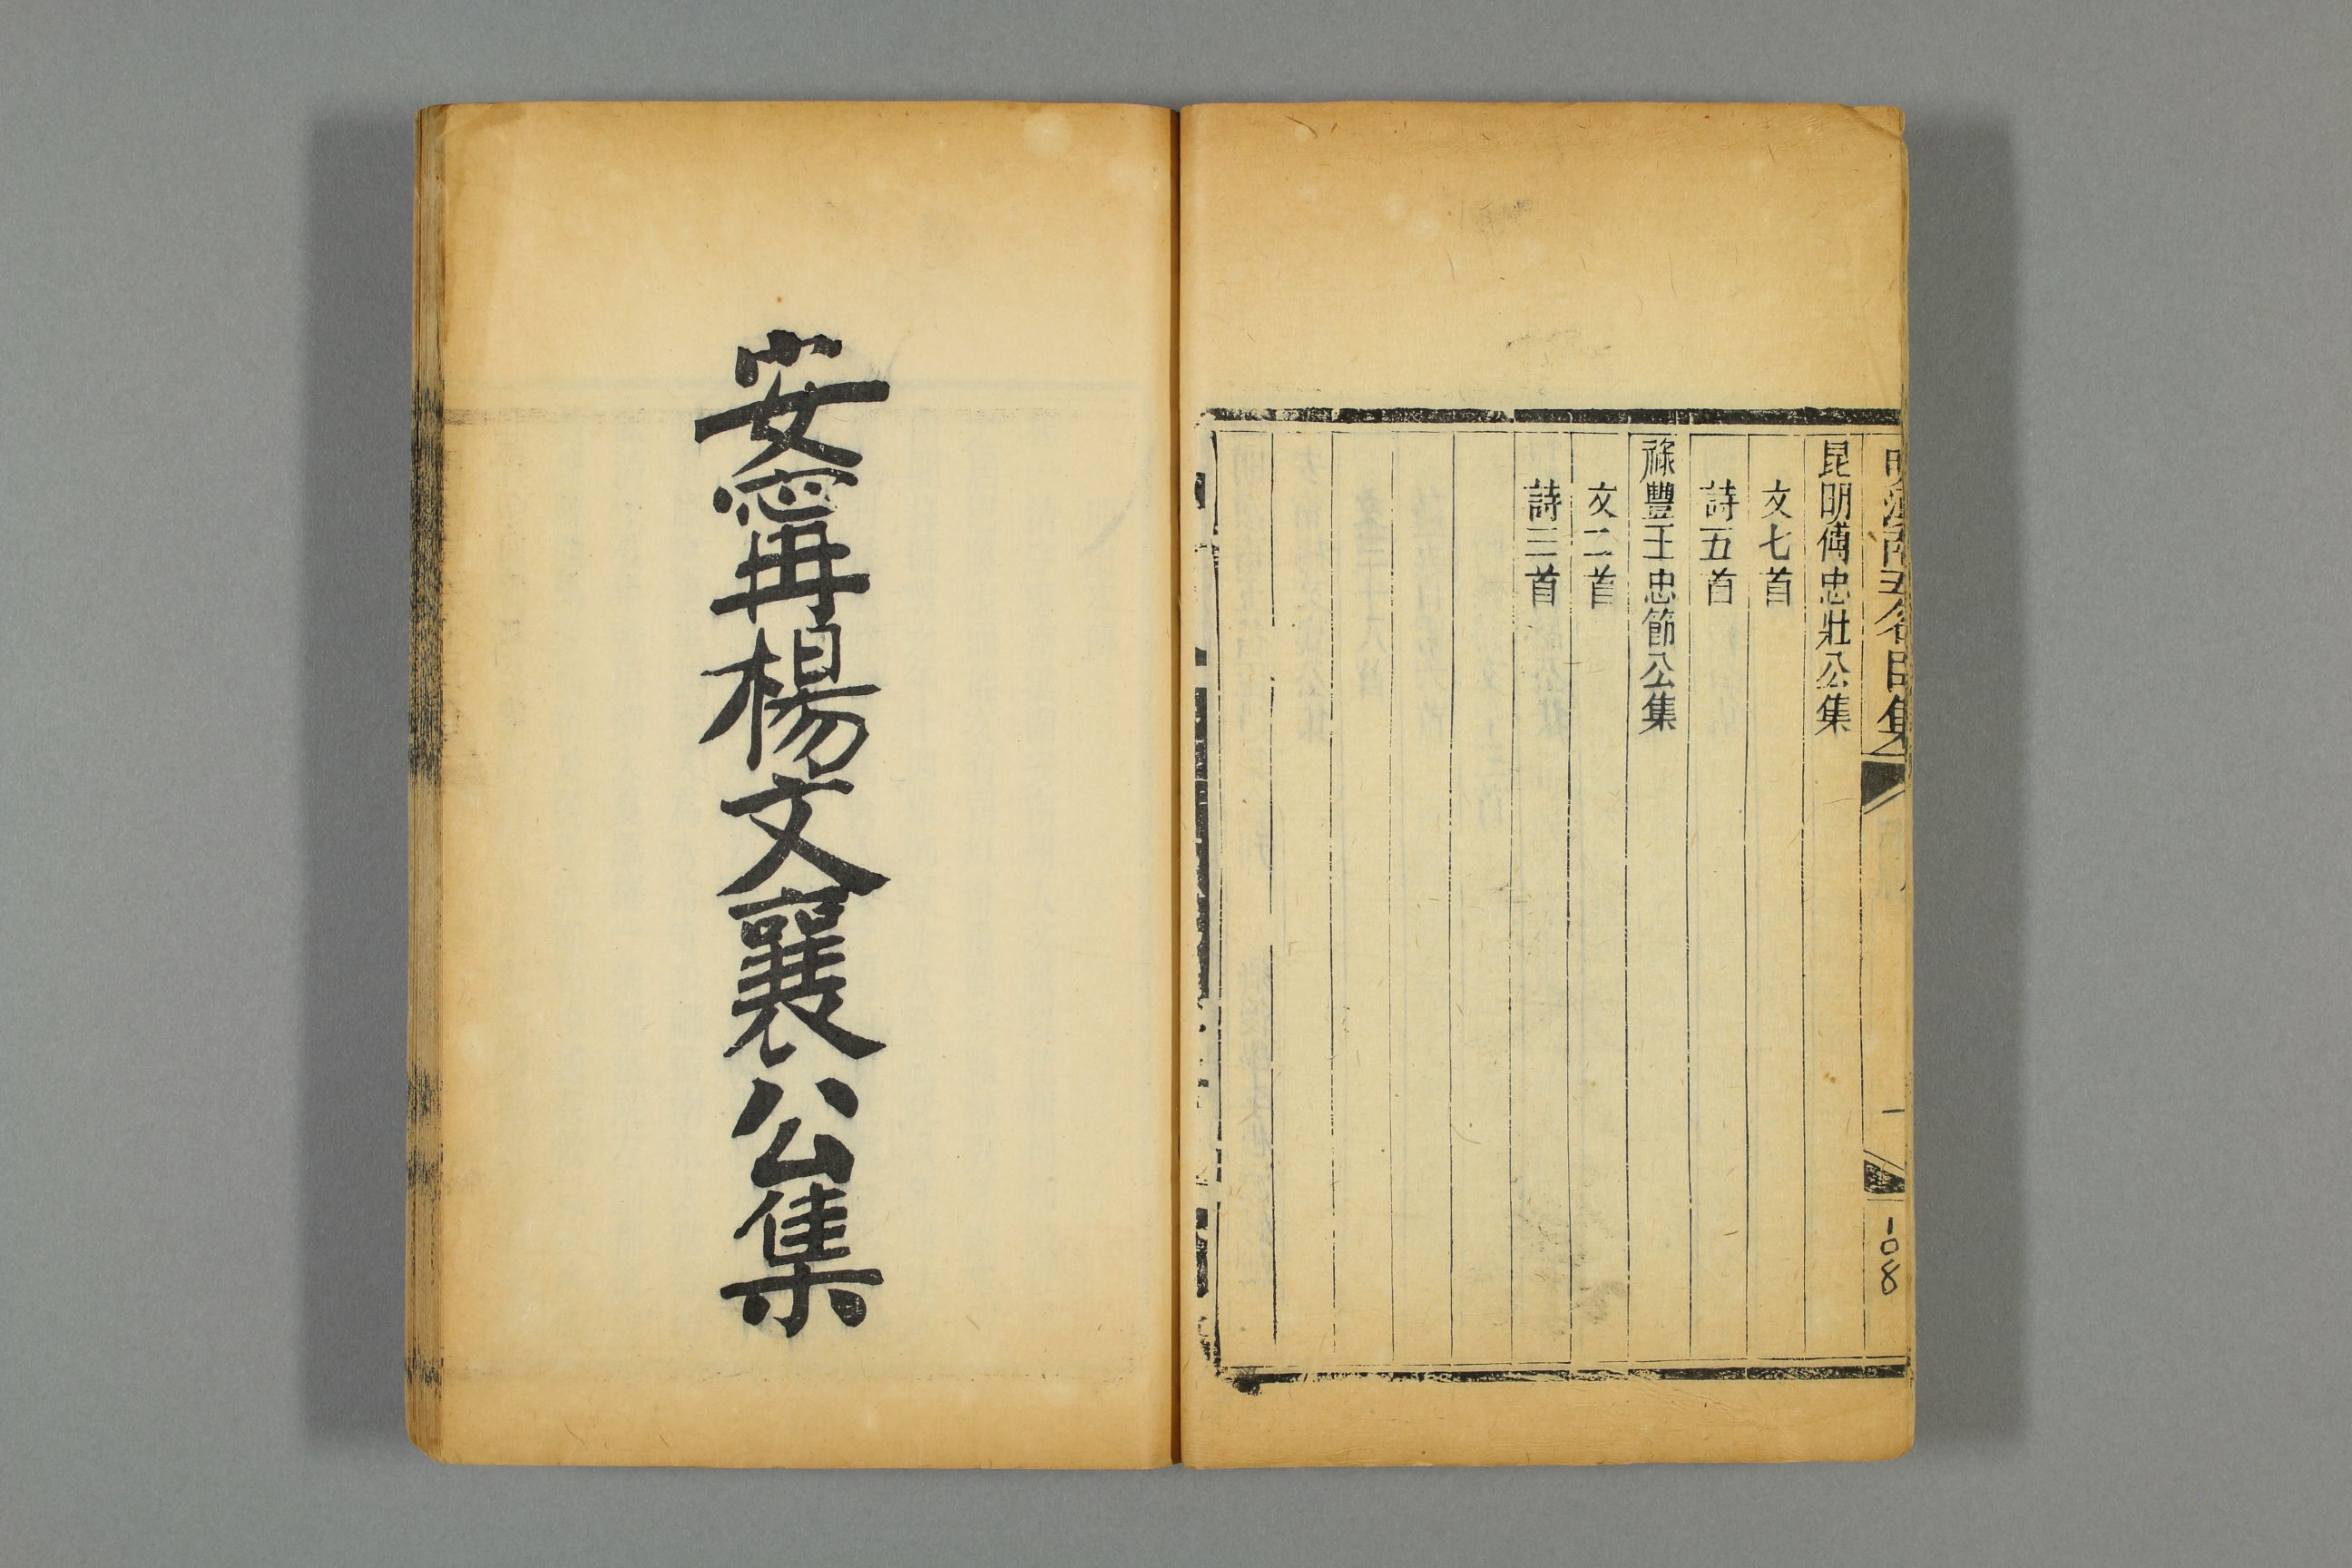 明滇南五名臣集
一
108
昆明傅忠壯公集
文七首
詩五首
祿豐王忠節公集
文二首
詩三首
安寧楊文襄公集